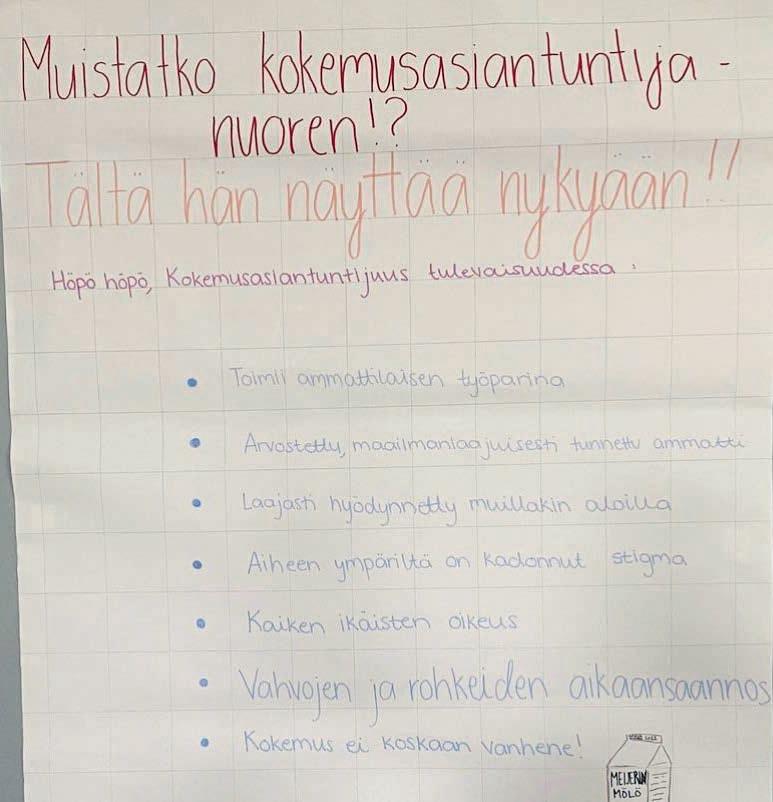 Muistatko kokemusasiantuntija-
nuoren!?
Tältä hän näyttää nykyään!!
Höpö höpö, Kokemusasiantuntijuus tulevaisuudessa:
• Toimii ammattilaisen työparina
• Arvostettu, maailmanlaajuisesti tunnettu ammatti
• Laajasti hyödynnetty muillakin aloilla
• Aiheen ympäriltä on kadonnut stigma
• Kaiken ikäisten oikeus
• Vahvojen ja rohkeiden aikaansaannos
• Kokemus ei koskaan vanhene!
MEIJERIN
MÖLÖ